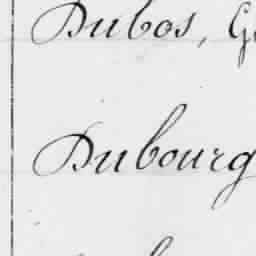 Dubos, G
Dubourg